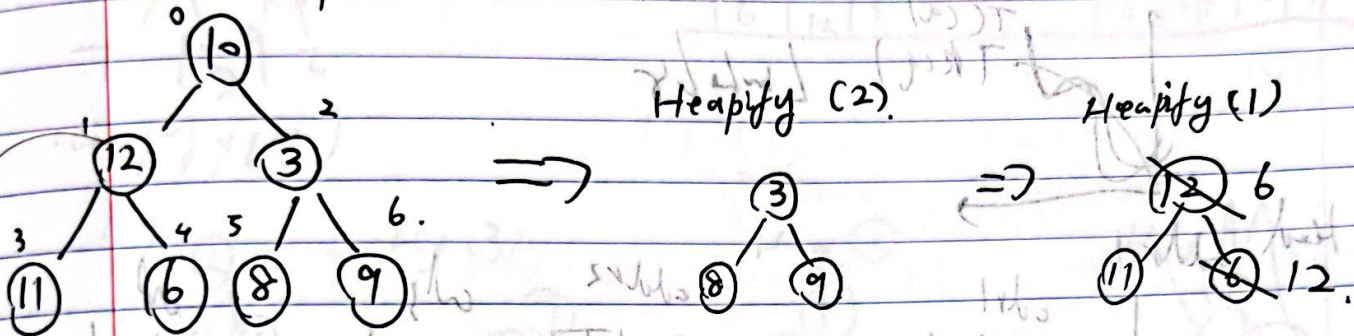 0
10
1 2
12 3
3 4 5 6.
11 6 8 9
Heapify (2).
3
8 9
Heapify (1)
12 6
11 6 12.